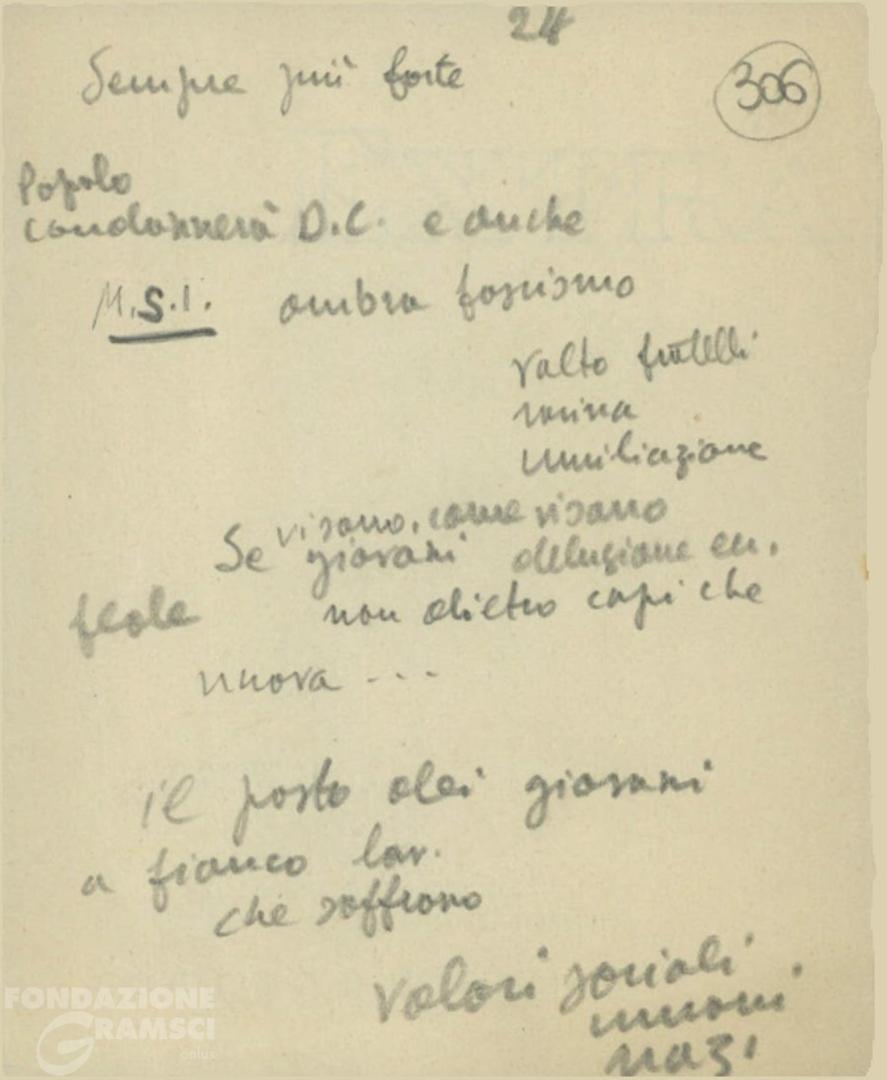 24
306
Sempre più forte
Popolo
condannerà D.C. e anche
M.S.I. ombra fascismo
Volto fratelli
rovina
umiliazione
vi sono, come vi sono
Se giovani delusione
fede non dietro capi che
nuova ...
il posto dei giovani
a fianco lav.
che soffrono
Valori sociali
umani
naz.
FONDAZIONE
GRAMSCI
onlus